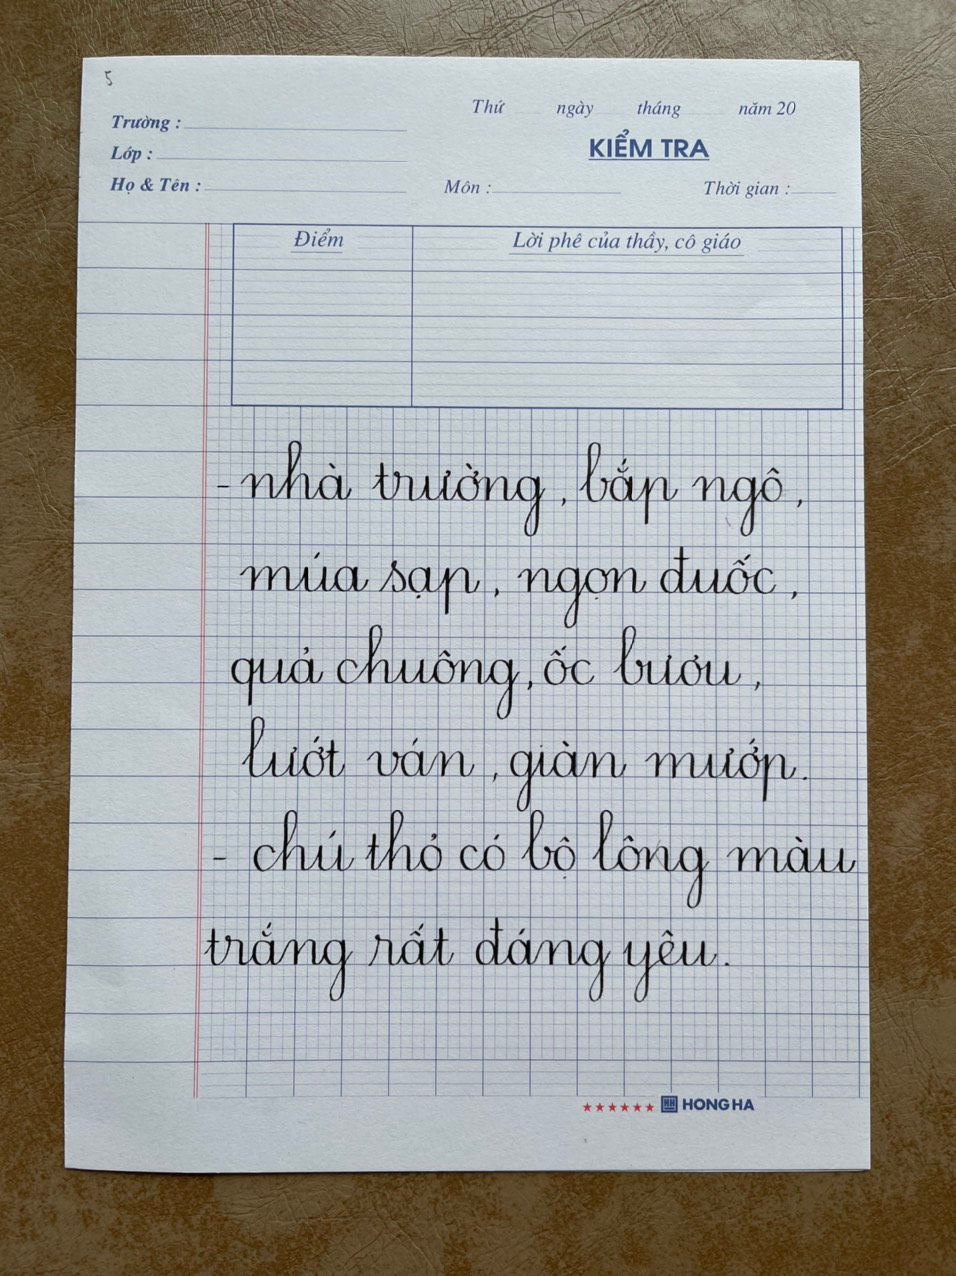 5
Thứ ngày tháng năm 20
Trường :
KIỂM TRA
Lớp :
Họ & Tên : Môn : Thời gian :
Điểm Lời phê của thầy, cô giáo
- nhà trường, bắp ngô,
múa sạp, ngọn đuốc,
quả chuông, ốc bươu,
lướt ván, giàn mướp.
- chú thỏ có bộ lông màu
trắng rất đáng yêu.
★★★★★★ HH HONG HA